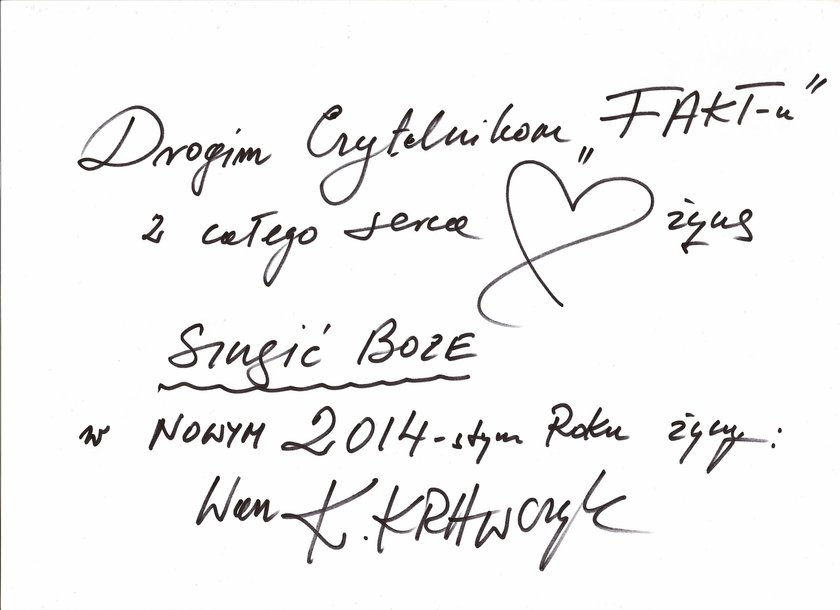 Drogim Czytelnikom „FAKT-u”
z całego serca życzę
Szczęść BOZE
w NOWYM 2014-stym Roku życzy:
Wasz K. KRAWCzyk